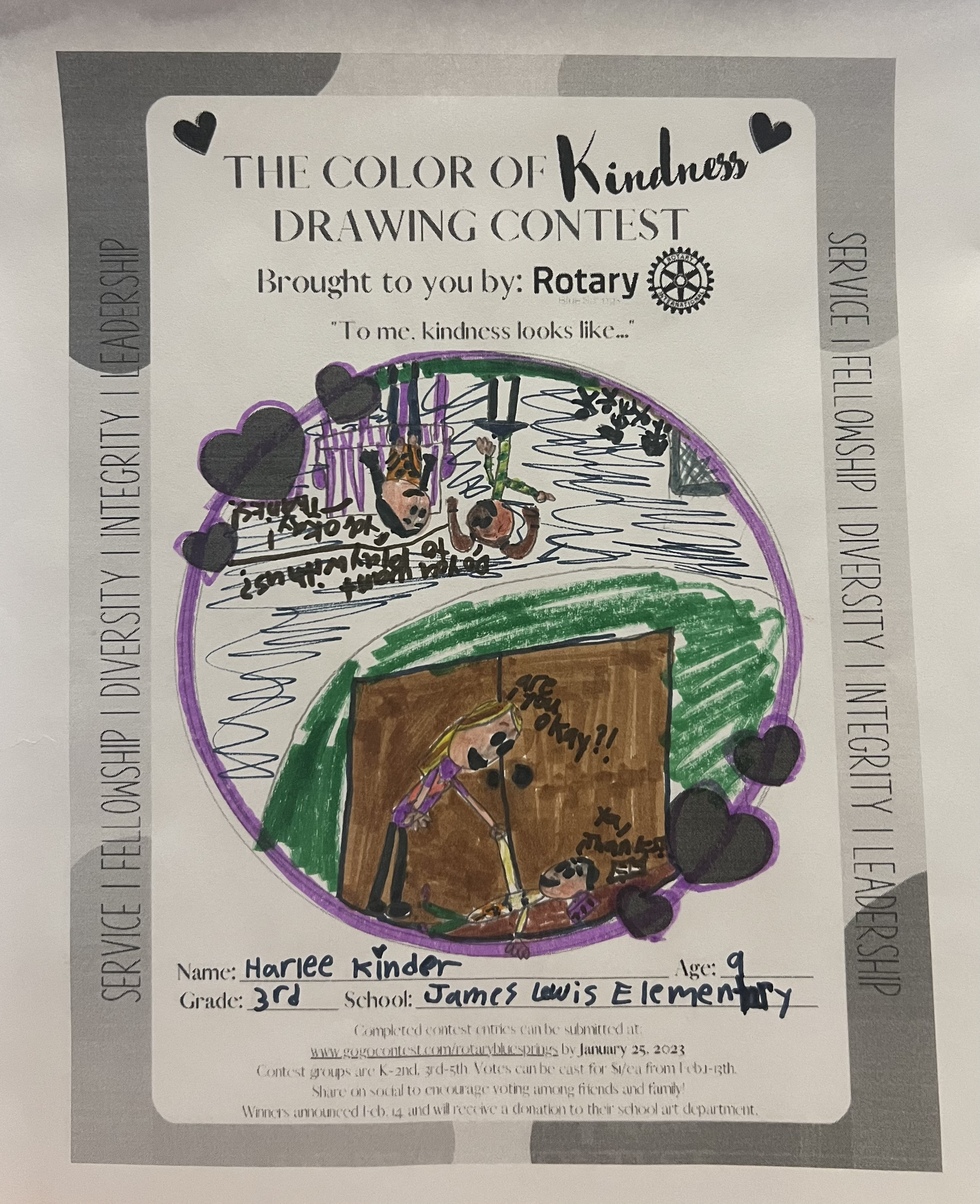 THE COLOR OF Kindness
DRAWING CONTEST
Brought to you by: Rotary
ROTARY
INTERNATIONAL
Blue Springs
"To me, kindness looks like..."
SERVICE | FELLOWSHIP | DIVERSITY | INTEGRITY | LEADERSHIP
SERVICE | FELLOWSHIP | DIVERSITY | INTEGRITY | LEADERSHIP
Do you want
to play with us?
okay!
Thanks!
are
you
okay?!
Thanks!
Name: Harlee Kinder Age: 9
Grade: 3rd School: James Lewis Elementary
Completed contest entries can be submitted at:
www.gogocontest.com/rotarybluesprings by January 25, 2023
Contest groups are K-2nd, 3rd-5th. Votes can be cast for $1/ea from Feb.1-13th.
Share on social to encourage voting among friends and family!
Winners announced Feb. 14, and will receive a donation to their school art department.